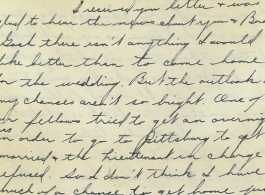 I received you letter & was
glad to hear the news about you &
Gosh there isn't anything I would
like better than to come home
for the wedding. But the outlook
my chances aren't so bright. One of
fellows tried to get an overnight
in order to go to Pittsburg to get
married & the Lieutenant in charge
refused. So I don't think I have
much of a chance to get home for